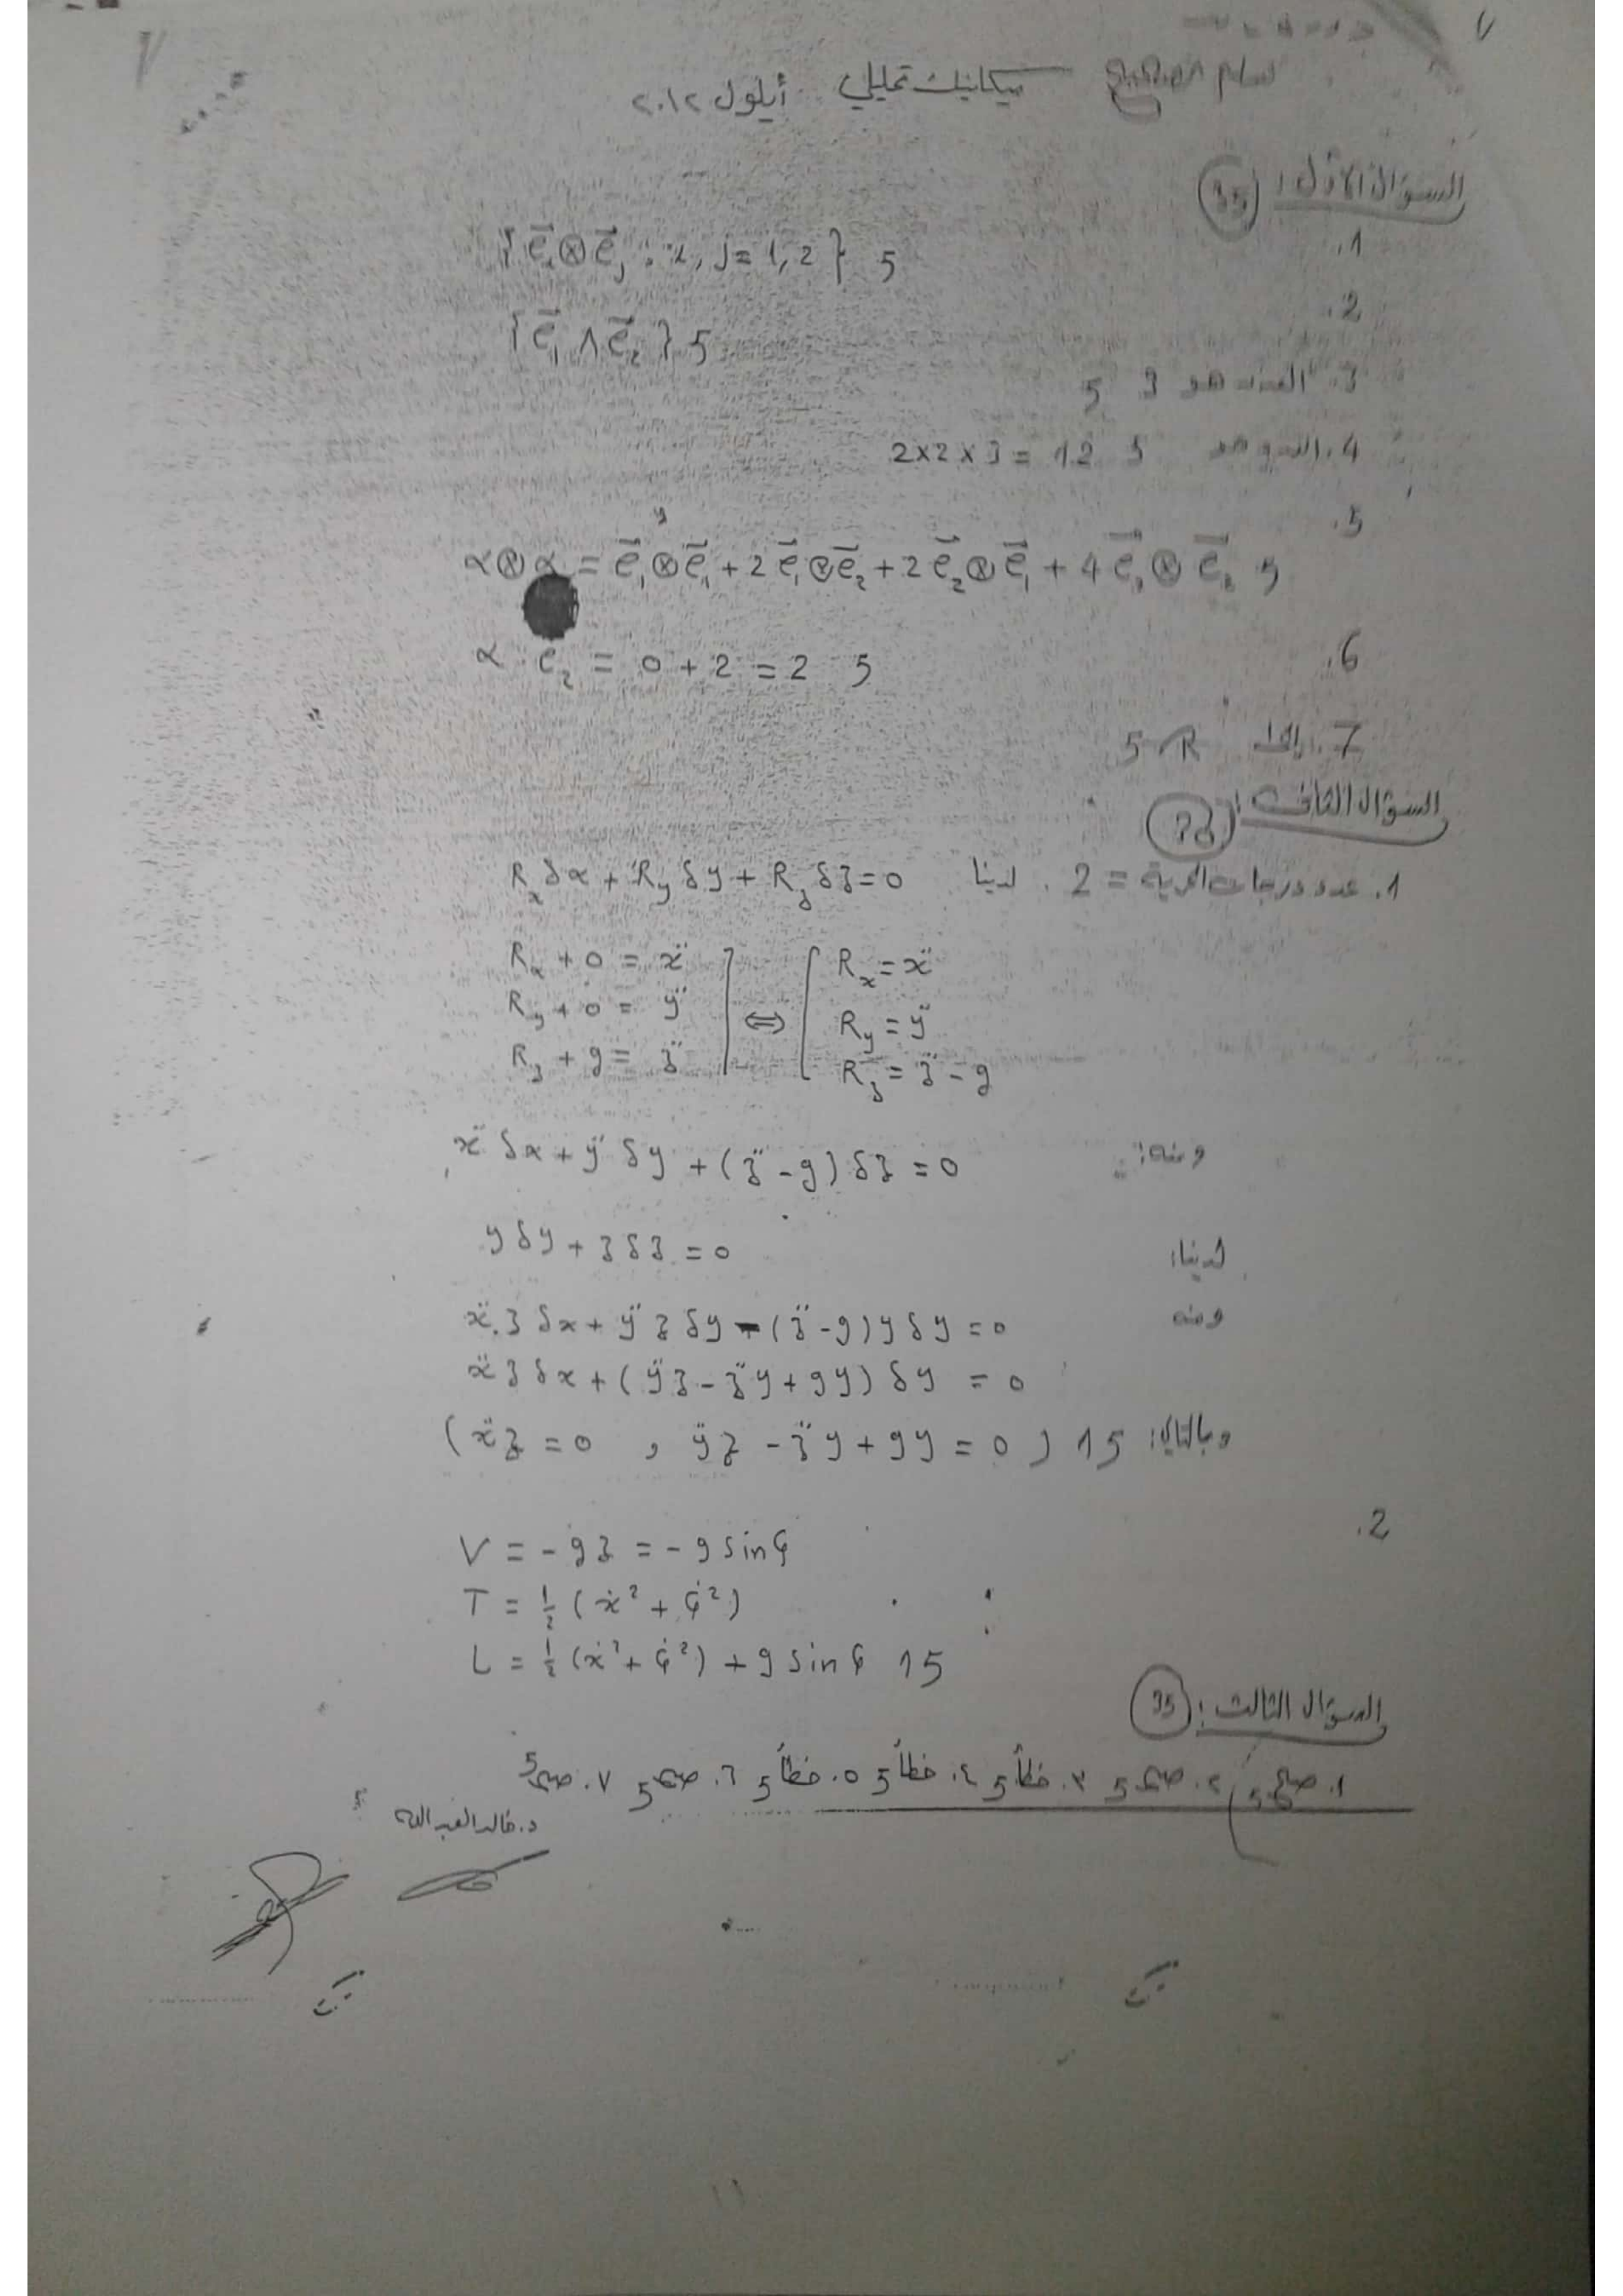 سلم التصحيح ميكانيك تحليلي أيلول ٢٠١٢
السؤال الأول: (35)
1. {e̅ᵢ⊗e̅ⱼ : i, j = 1, 2} 5
2. {e̅₁ ∧ e̅₂} 5
3. العدد هو 3 5
4. العدد هو 2×2×3 = 12 5
5. α⊗α = e̅₁⊗e̅₁ + 2 e̅₁⊗e̅₂ + 2 e̅₂⊗e̅₁ + 4 e̅₂⊗e̅₂ 5
6. α · e₂ = 0 + 2 = 2 5
7. R 5
السؤال الثاني: (30)
1. عدد درجات الحرية = 2. لدينا Rₓ δx + R_y δy + R_z δz = 0
Rₓ + 0 = ẍ ⇔ Rₓ = ẍ
R_y + 0 = ÿ R_y = ÿ
R_z + g = z̈ R_z = z̈ - g
ومنه: ẍ δx + ÿ δy + (z̈ - g) δz = 0
لدينا: y δy + z δz = 0
ومنه ẍ z δx + ÿ z δy - (z̈ - g) y δy = 0
ẍ z δx + (ÿ z - z̈ y + g y) δy = 0
وبالتالي: (ẍ z = 0 , ÿ z - z̈ y + g y = 0) 15
2. V = - g z = - g sin φ
T = ½ (ẋ² + φ̇²)
L = ½ (ẋ² + φ̇²) + g sin φ 15
السؤال الثالث: (35)
١. صح 5 ٢. صح 5 ٣. خطأ 5 ٤. خطأ 5 ٥. خطأ 5 ٦. صح 5 ٧. صح 5
د. خالد العبد الله